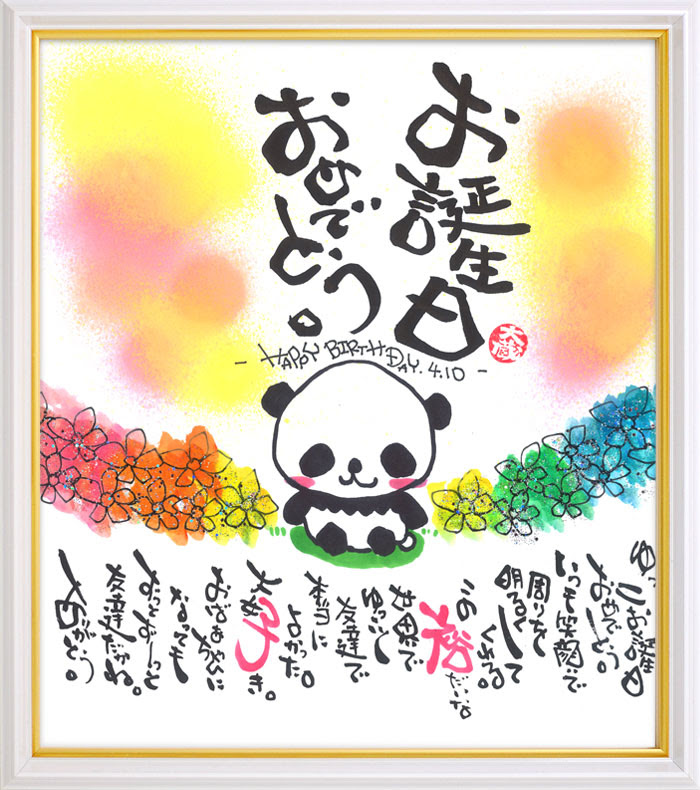 お誕生日
おめでとう。
- HAPPY BIRTHDAY. 4.10 -
ゆっこお誕生日
おめでとう。
いつも笑顔で
周りを
明るくして
くれる。
この裕だいな
世界で
ゆっこと
友達で
本当に
よかった。
大好き。
おばあちゃんに
なっても
ずっとずーっと
友達だがね。
ありがとう